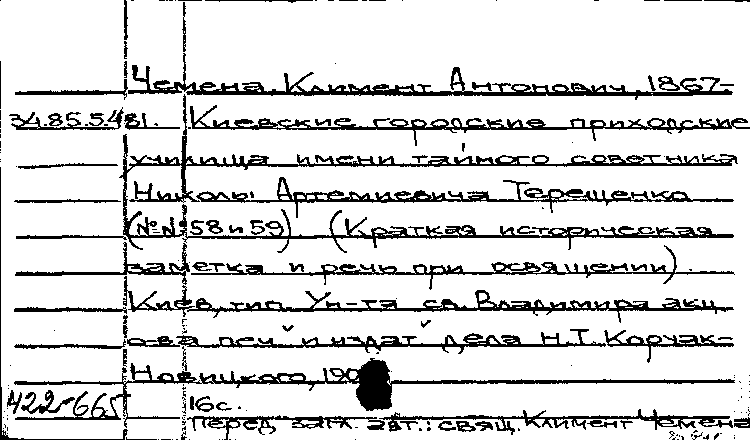 Чемена, Климент Антонович, 1867-
34.85.5.481. Киевские городские приходские
училища имени тайного советника
Николы Артемиевича Терещенко
(№№ 58 и 59). (Краткая историческая
заметка и речь при освящении).
Киев, тип. Ун-та св. Владимира акц.
о-ва печ. и издат. дела Н.Т. Корчак-
Новицкого, 190
422-665 16с.
Перед загл. авт.: свящ. Климент Чемена